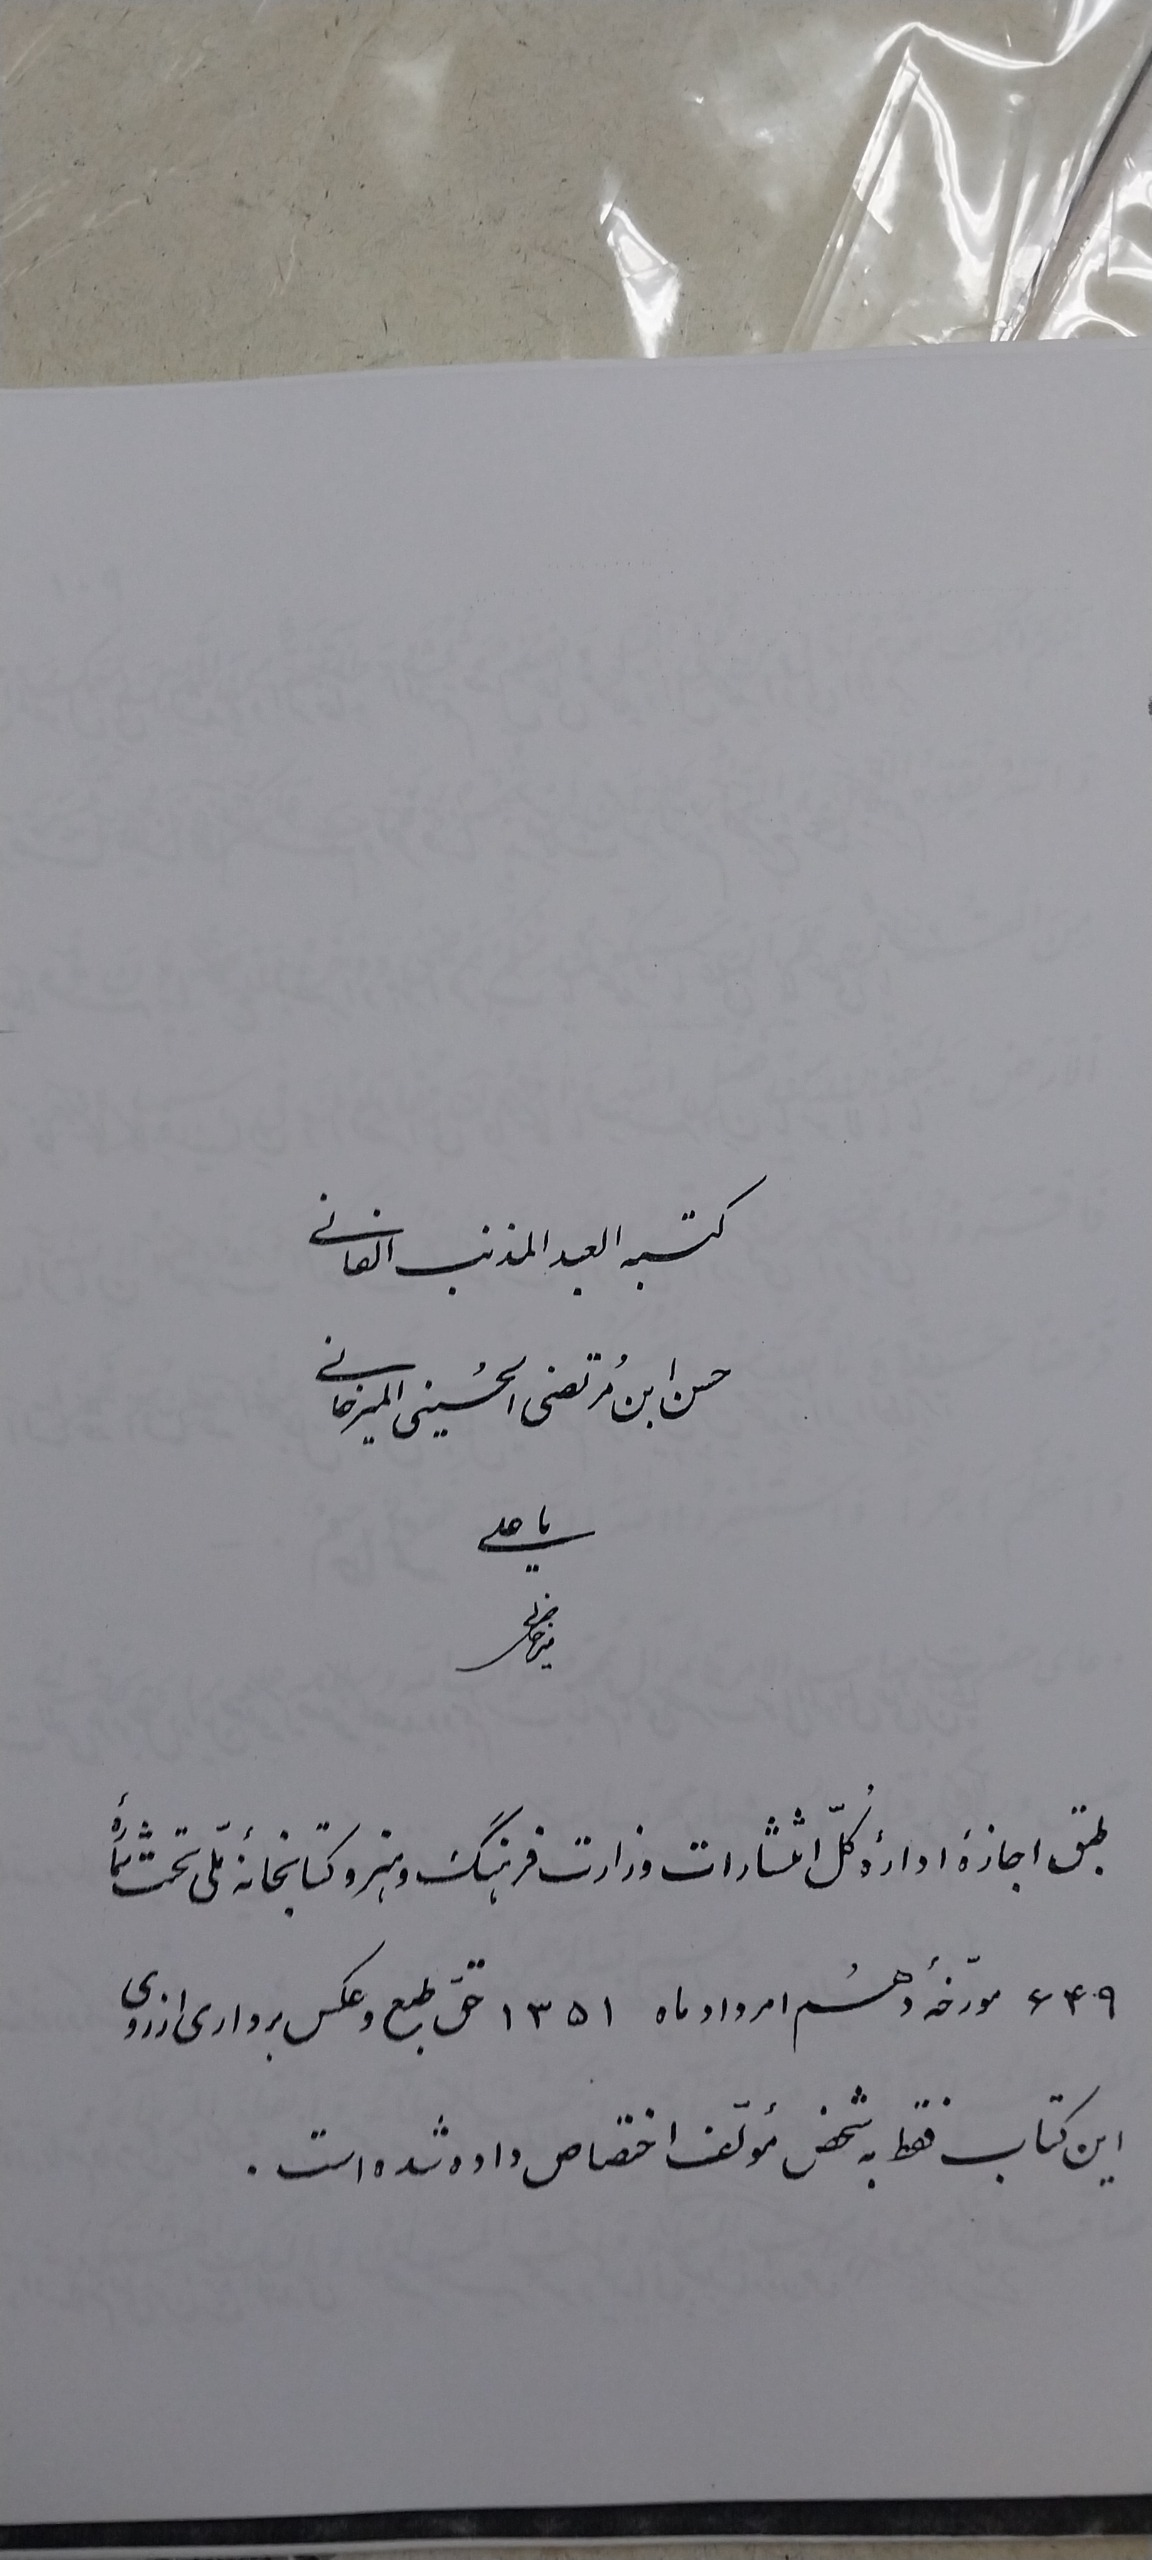 کتبه العبد المذنب الفانی
حسن ابن مُرتضی الحُسینی المیرخانی
یا علی
میرخانی
طبق اجازهٔ ادارهٔ کُلّ انتشارات وزارت فرهنگ و هنر و کتابخانهٔ ملّی تحت شمارهٔ
۶۴۹ مورّخهٔ دهُم امرداد ماه ۱۳۵۱ حقّ طبع و عکس برداری از روی
این کتاب فقط به شخص مؤلّف اختصاص داده شده است .